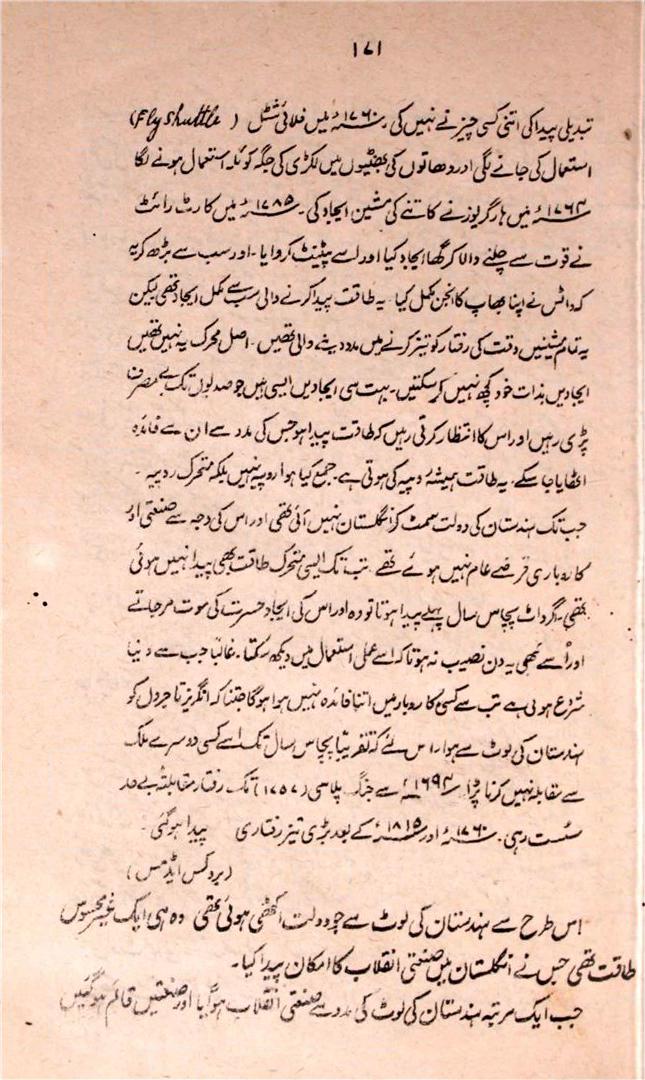 ۱۷۱
تبدیلی پیدا کی اتنی کسی چیز نے نہیں کی ۱۷۶۰ء میں فلائی شٹل (Fly Shuttle)
استعمال کی جانے لگی اور دھاتوں کی بھٹیوں میں لکڑی کی جگہ کوئلہ استعمال ہونے لگا
۱۷۶۴ء میں ہارگریوز نے کاتنے کی مشین ایجاد کی۔ ۱۷۸۵ء میں کارٹ رائٹ
نے قوت سے چلنے والا کرگھا ایجاد کیا اور اسے پیٹنٹ کروایا۔ اور سب سے بڑھ کر یہ
کہ واٹس نے اپنا بھاپ کا انجن مکمل کیا یہ طاقت پیدا کرنے والی سب سے مکمل ایجاد تھی لیکن
یہ تمام مشینیں وقت کی رفتار کو تیز کرنے میں مدد دینے والی تھیں۔ اصل محرک یہ نہیں تھیں
ایجادیں بذات خود کچھ نہیں کر سکتیں۔ بہت سی ایجادیں ایسی ہیں جو صدیوں تک بے مصرف
پڑی رہیں اور اس کا انتظار کرتی رہیں کہ طاقت پیدا ہو جس کی مدد سے ان سے فائدہ
اٹھایا جا سکے۔ یہ طاقت ہمیشہ روپیہ کی ہوتی ہے۔ جمع کیا ہوا روپیہ نہیں بلکہ متحرک روپیہ۔
جب تک ہندستان کی دولت سمٹ کر انگلستان نہیں آئی تھی اور اس کی وجہ سے صنعتی اور
کاروباری قرضے عام نہیں ہوئے تھے تب تک ایسی متحرک طاقت بھی پیدا نہیں ہوئی
تھی۔ اگر واٹ پچاس سال پہلے پیدا ہوتا تو وہ اور اس کی ایجاد حسرت کی موت مر جاتے
اور اُسے کبھی یہ دن نصیب نہ ہوتا کہ اسے عملی استعمال میں دیکھ سکتا۔ غالباً جب سے دنیا
شروع ہوئی ہے تب سے کسی کاروبار میں اتنا فائدہ نہیں ہوا ہوگا جتنا کہ انگریز تاجروں کو
ہندستان کی لوٹ سے ہوا۔ اس لئے کہ تقریباً پچاس سال تک اسے کسی دوسرے ملک
سے مقابلہ نہیں کرنا پڑا۔ ۱۶۹۴ء سے جنگ پلاسی (۱۷۵۷) تک رفتار مقابلتہً بے حد
سست رہی۔ ۱۷۶۰ء اور ۱۸۱۵ء کے بعد بڑی تیز رفتاری پیدا ہوگئی۔
(بروکس ایڈمس)
اس طرح سے ہندستان کی لوٹ سے جو دولت اکٹھی ہوئی تھی وہ ہی ایک غیر محسوس
طاقت تھی جس نے انگلستان میں صنعتی انقلاب کا امکان پیدا کیا۔
جب ایک مرتبہ ہندستان کی لوٹ کی مدد سے صنعتی انقلاب ہو گیا اور صنعتیں قائم ہو گئیں